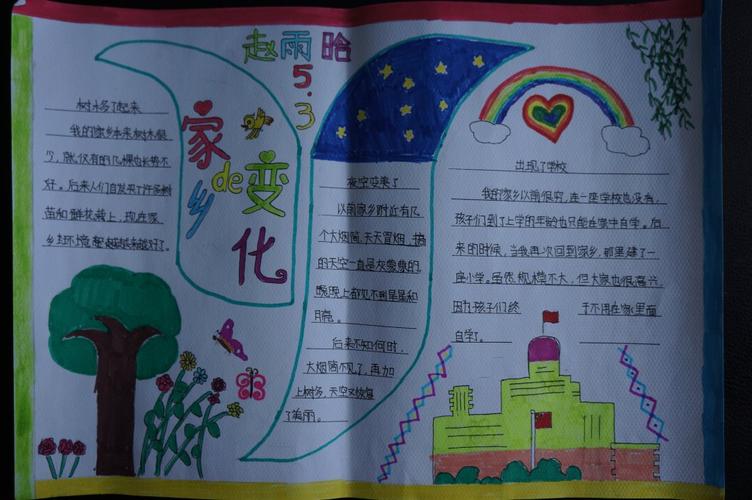 赵雨晗
5.3
家乡de变化
树木多了起来
我的家乡本来树木很
少,就仅有的几棵也长势不
好。后来人们自发买了许多树
苗和鲜花栽上,现在家
乡环境越来越好了。
夜空变美了
以前家乡附近有几
个大烟筒,天天冒烟,搞
的天空一直是灰蒙蒙的
晚上都见不到星星和
月亮。
后来不知何时,
大烟筒不见了,再加
上树多,天空又恢复
了美丽。
出现了学校
我的家乡以前很穷,连一座学校也没有,
孩子们到了上学的年龄也只能在家中自学。后
来的时候,当我再次回到家乡,那里建了一
座小学。虽然规模不大,但大家也很高兴,
因为孩子们终于不用在家里面
自学了。